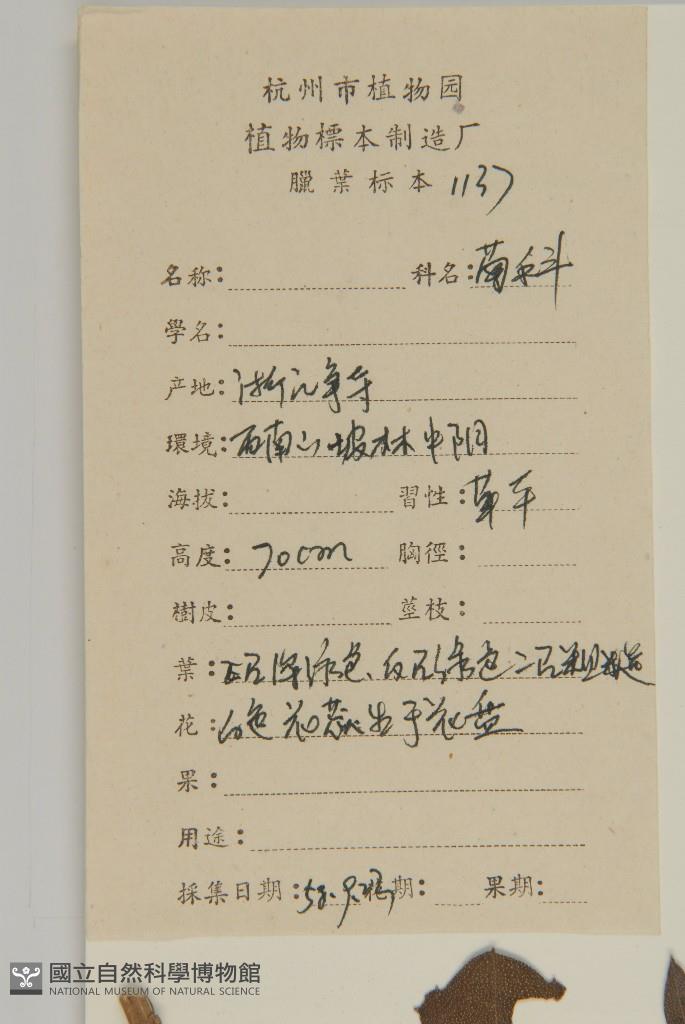 杭州市植物园
植物標本制造厂
臘葉标本 1137
名称： 科名：菊科
學名：
产地：浙江
環境：西南山坡林中阴
海拔： 習性：草本
高度：70cm 胸徑：
樹皮： 莖枝：
葉：正面深绿色、反面绿色二面粗糙
花：白色花蕊出于花
果：
用途：
採集日期： 期： 果期：
國立自然科學博物館
NATIONAL MUSEUM OF NATURAL SCIENCE